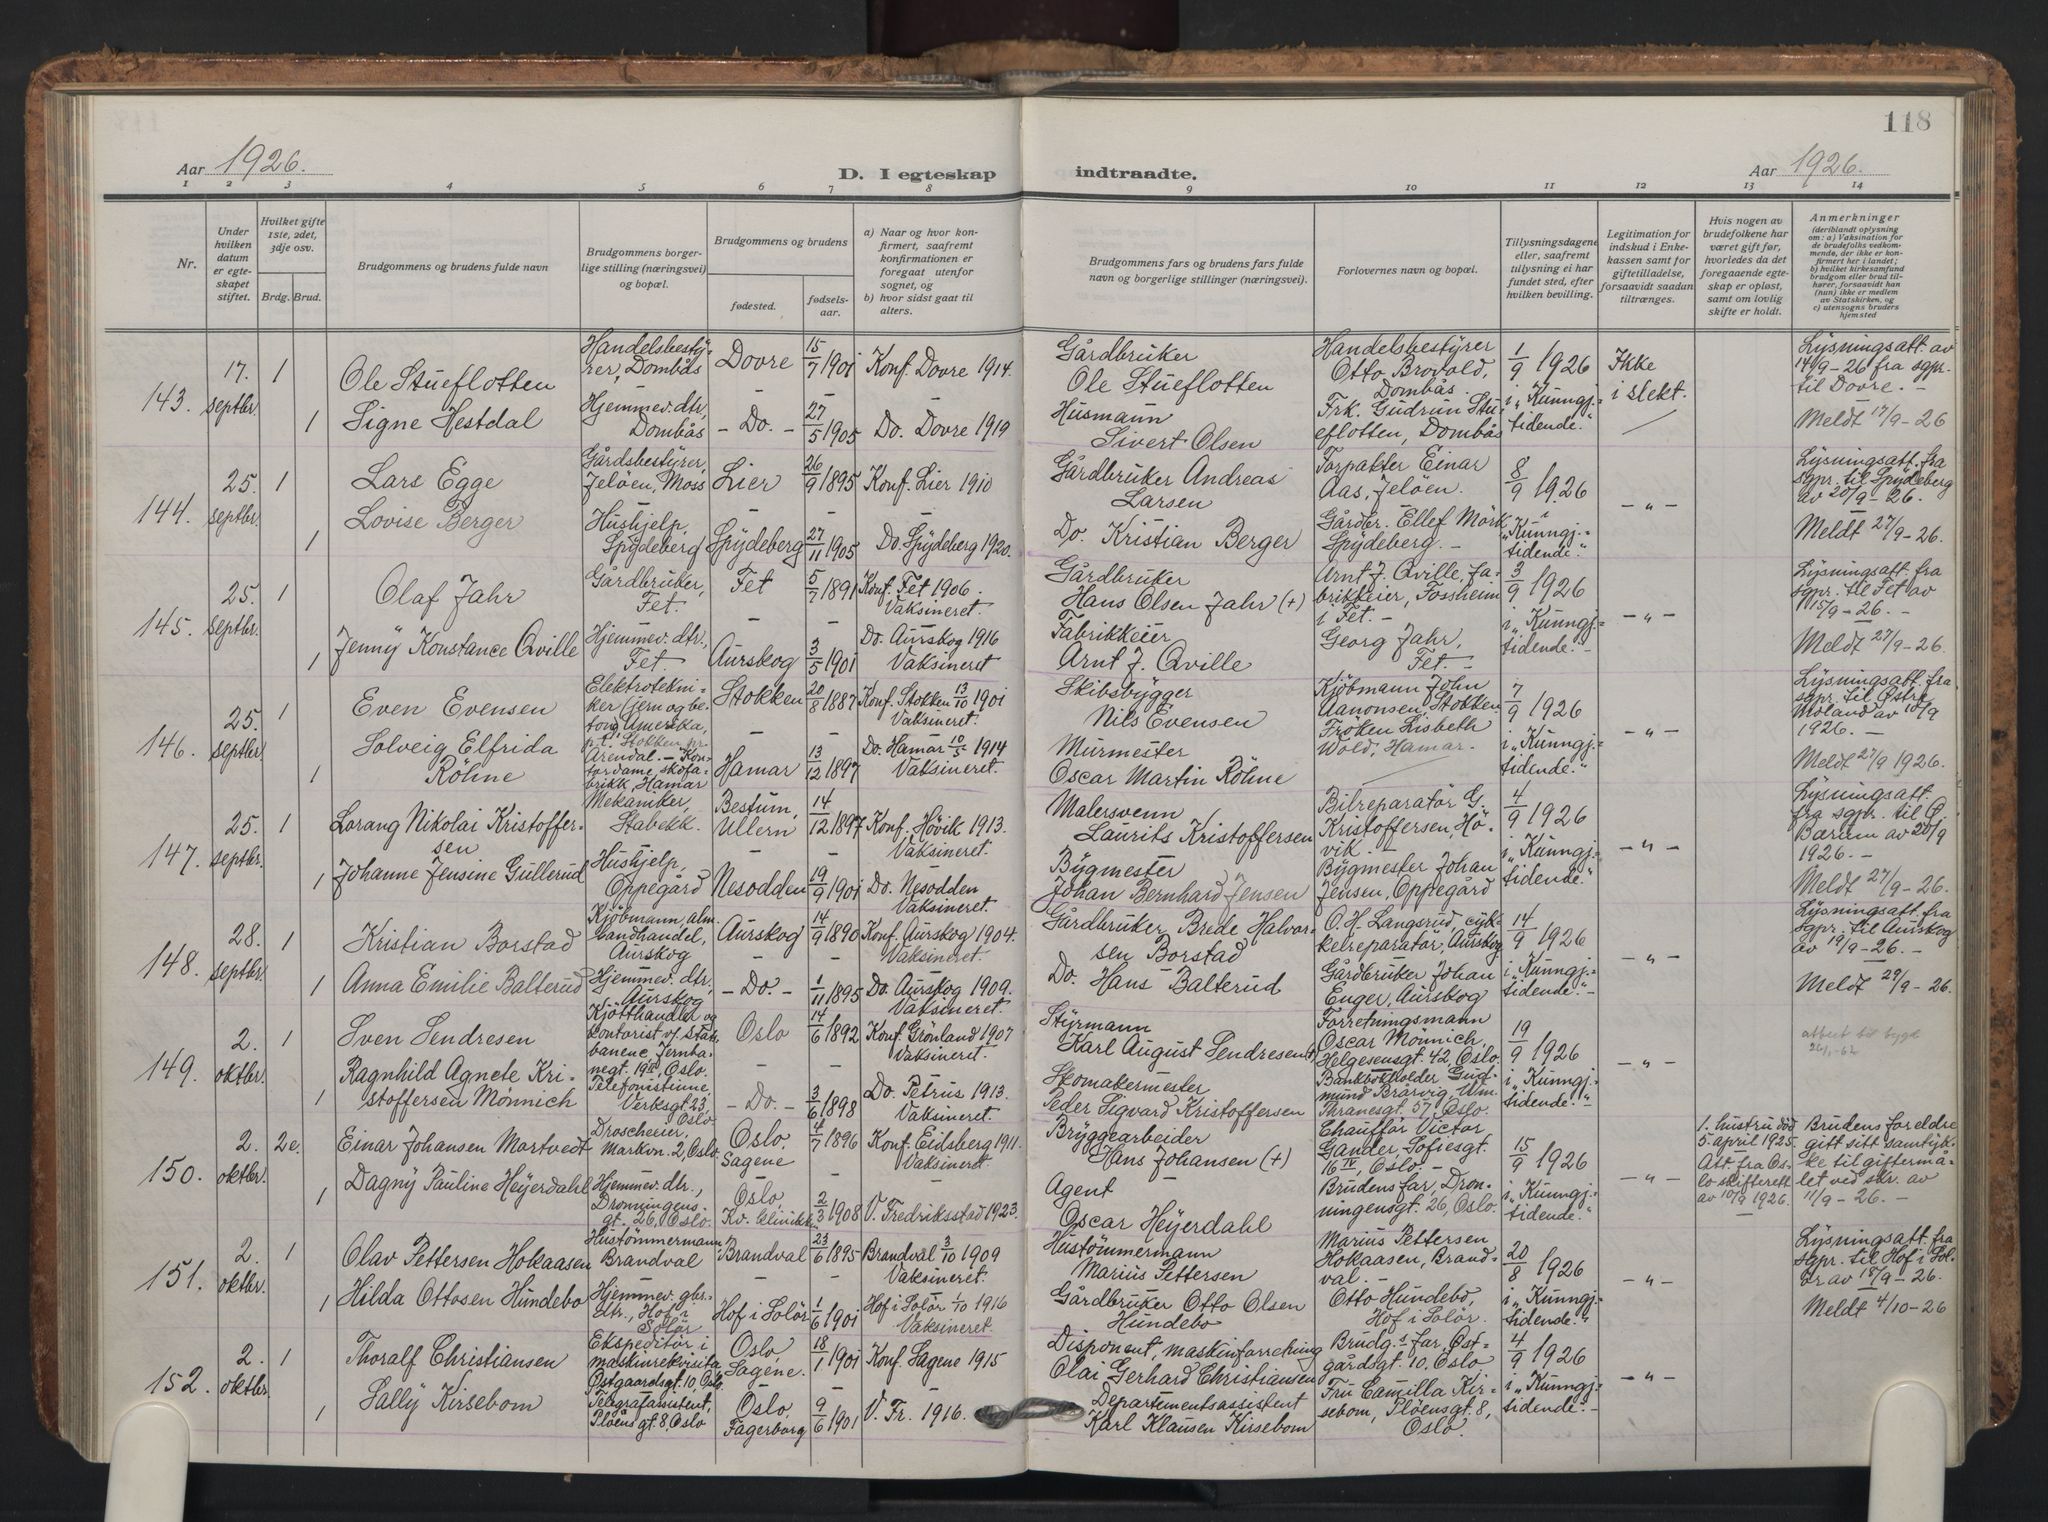 118
Aar 1926.
D. I egteskap indtraadte.
Aar 1926.
1 2 3 4 5 6 7 8 9 10 11 12 13 14
Nr.
Under hvilken datum er egteskapet stiftet.
Hvilket gifte 1ste, 2det, 3dje osv.
Brdg. Brud.
Brudgommens og brudens fulde navn
Brudgommens borgerlige stilling (næringsvei) og bopæl.
Brudgommens og brudens
fødested.
fødselsaar.
a) Naar og hvor konfirmert, saafremt konfirmationen er foregaat utenfor sognet, og
b) hvor sidst gaat til alters.
Brudgommens fars og brudens fars fulde navn og borgerlige stillinger (næringsvei).
Forlovernes navn og bopæl.
Tillysningsdagene eller, saafremt tillysning ei har fundet sted, efter hvilken bevilling.
Legitimation for indskud i Enkekassen samt for giftetilladelse, forsaavidt saadan tiltrænges.
Hvis nogen av brudefolkene har været gift før, hvorledes da det foregaaende egteskap er opløst, samt om lovlig skifte er holdt.
Anmerkninger (deriblandt oplysning om: a) Vaksination for de brudefolks vedkommende, der ikke er konfirmert her i landet; b) hvilket kirkesamfund brudgom eller brud tilhører, forsaavidt han (hun) ikke er medlem av Statskirken, og c) utensogns bruders hjemsted
143. 17. septbr. 1
Ole Stueflotten
Handelsbestyrer, Dombås
Dovre 15/7 1901 Konf. Dovre 1914.
Gårdbruker Ole Stueflotten
Handelsbestyrer Otto Brovold, Dombås
1/9 1926 i „Kunngj.-tidende."
Ikke i slekt.
Lysningsatt. av 14/9-26 fra sgpr. til Dovre. -
1 Signe Hestdal
Hjemmev. dtr, Dombås
- Do. - 27/5 1905 Do. Dovre 1919
Husmann Sivert Olsen
Frk. Gudrun Stueflotten, Dombås
Meldt 17/9-26
144. 25. septbr. 1
Lars Egge
Gårdsbestyrer, Jeløen, Moss
Lier 26/9 1895 Konf. Lier 1910
Gårdbruker Andreas Larsen
Forpakter Einar Aas, Jeløen.
8/9 1926 i „Kunngj.-tidende."
- „ -
Lysningsatt. fra sgpr. til Spydeberg av 20/9-26.
1 Lovise Berger
Hushjelp, Spydeberg
Spydeberg 27/11 1905 Do. Spydeberg 1920.
Do. Kristian Berger
Gårdbr. Ellef Mörk Spydeberg. -
Meldt 27/9-26.
145. 25. septbr. 1
Olaf Jahr
Gårdbruker, Fet.
Fet 5/7 1891 Konf. Fet 1906. Vaksineret.
Gårdbruker Hans Olsen Jahr (+)
Arnt J. Qville, fabrikkeier, Fossheim i Fet. -
3/9 1926 i „Kunngj.-tidende."-
- „ -
Lysningsatt. fra sgpr. til Fet av 15/9-26. -
1 Jenny Konstance Qville
Hjemmev. dtr., Fet.
Aurskog 3/5 1901 Do. Aurskog 1916 Vaksineret
Fabrikkeier Arnt J. Qville
Georg Jahr, Fet. -
Meldt 27/9-26.
146. 25. septbr. 1
Even Evensen
Elektrotekniker (jern og betong) Amerika, p.t. Stokken pr. Arendal. -
Stokken 20/8 1887 Konf. Stokken 13/10 1901 Vaksineret.
Skibsbygger Nils Evensen
Kjöbmann John Aanonsen, Stokken
7/9 1926 i „Kunngj.-tidende."
- „ -
Lysningsatt. fra sgpr. til Østre Moland av 10/9 1926. -
1 Solveig Elfrida Röhne
Kontordame, skofabrikk, Hamar
Hamar 13/12 1897 Do. Hamar 10/5 1914 Vaksineret.
Murmester Oscar Martin Röhne
Fröken Lisbeth Wold, Hamar.
Meldt 27/9 1926.
147. 25. septbr. 1
Lorang Nikolai Kristoffersen
Mekaniker, Stabekk.
Bestum, Ullern 14/12 1897 Konf. Hövik 1913. Vaksineret.
Malersvenn Laurits Kristoffersen
Bilreparatör G. Kristoffersen, Hövik. -
4/9 1926 i „Kunngj.-tidende."
- „ -
Lysningsatt. fra sgpr. til Ø. Bærum av 20/9 1926. -
1 Johanne Jensine Gullerud
Hushjelp, Oppegård
Nesodden 19/9 1901 Do. Nesodden Vaksineret.
Bygmester Johan Bernhard Jensen
Bygmester Johan Jensen, Oppegård
Meldt 27/9-26.
148. 28. septbr. 1
Kristian Borstad
Kjöbmann, alm. landhandel, Aurskog
Aurskog 14/9 1890 Konf. Aurskog 1904. Vaksineret.
Gårdbruker Brede Halvorsen Borstad
O. H. Langsrud, cykkelreparatör, Aurskog
14/9 1926 i „Kunngj.-tidende."-
- „ -
Lysningsatt. fra sgpr. til Aurskog av 19/9-26. -
1 Anna Emilie Balterud
Hjemmev. dtr., Aurskog
- Do. - 1/11 1895 Do. Aurskog 1909. Vaksineret.
Do. Hans Balterud
Gårdbruker Johan Enger, Aurskog
Meldt 29/9-26.
149. 2. oktbr. 1
Sven Sendresen
Kjötthandler og kontorist v/ Statsbanene, Jernbanegt. 19 III, Oslo.
Oslo 14/6 1892 Konf. Grönland 1907 Vaksineret.
Styrmann Karl August Sendresen (+)
Forretningsmann Oscar Mönnich, Helgesensgt. 42, Oslo.
19/9 1926 i „Kunngj.-tidende."-
- „ -
1 Ragnhild Agnete Kristoffersen Mönnich
Telefonistinne, Verksgt. 23, Oslo.
- Do. - 3/6 1898 Do. Petrus 1913. Vaksineret.
Skomakermester Peder Sigvard Kristoffersen
Bankbokholder Gudmund Brårvig, Wm. Thranesgt. 57, Oslo.
150. 2. oktbr. 2e.
Einar Johansen Mortvedt
Droscheeier, Markvn. 2, Oslo.
Oslo, Sagene 4/7 1896 Konf. Eidsberg 1911. Vaksineret.
Bryggearbeider Hans Johansen (+)
Chaufför Victor Gander, Sofiesgt. 16 IV, Oslo. -
15/9 1926 i „Kunngj.-tidende."
- „ -
1. hustru död 5. april 1925. Att. fra Oslo skifterett av 10/9 1926.
Brudens foreldre gitt sitt samtykke til giftermålet ved skr. av 11/9-26. -
1 Dagny Pauline Heyerdahl
Hjemmev. dtr., Dronningensgt. 26, Oslo.
Oslo, Kv. klinikk 2/3 1908 V. Fredriksstad 1923.
Agent Oscar Heyerdahl
Brudens far, Dronningensgt. 26, Oslo.
151. 2. oktbr. 1
Olav Pettersen Hokaasen
Hustömmermann, Brandval
Brandval 23/6 1895 Brandval 3/10 1909 Vaksineret.
Hustömmermann Marius Pettersen
Marius Pettersen Hokaasen, Brandval. -
20/8 1926 i „Kunngj.-tidende."
- „ -
Lysningsatt. fra sgpr. til Hof i Solör av 18/9-26.
1 Hilda Ottosen Hundebo
Hjemmev. gbr. dtr., Hof i Solör
Hof i Solör 1/6 1901 Hof i Solör 1/10 1916 Vaksineret.
Gårdbruker Otto Olsen Hundebo
Otto Hundebo, Hof i Solör.
Meldt 4/10-26
152. 2. oktbr. 1
Thoralf Christiansen
Ekspeditör i maskinrekvisita Østgaardsgt. 10, Oslo.
Oslo, Sagene. 18/1 1901 Konf. Sagene 1915
Disponent, maskinforretning Olai Gerhard Christiansen
Brudg.s far, Østgårdsgt. 10, Oslo
4/9 1926 i „Kunngj.-tidende."-
- „ -
1 Sally Kirsebom
Telegrafassistent, Plöens gt. 8, Oslo
Oslo, Fagerborg 9/6 1901 V. Fr. 1916.
Departementsassistent Karl Klausen Kirsebom
Fru Camilla Kirsebom, Plöensgt. 8, Oslo.